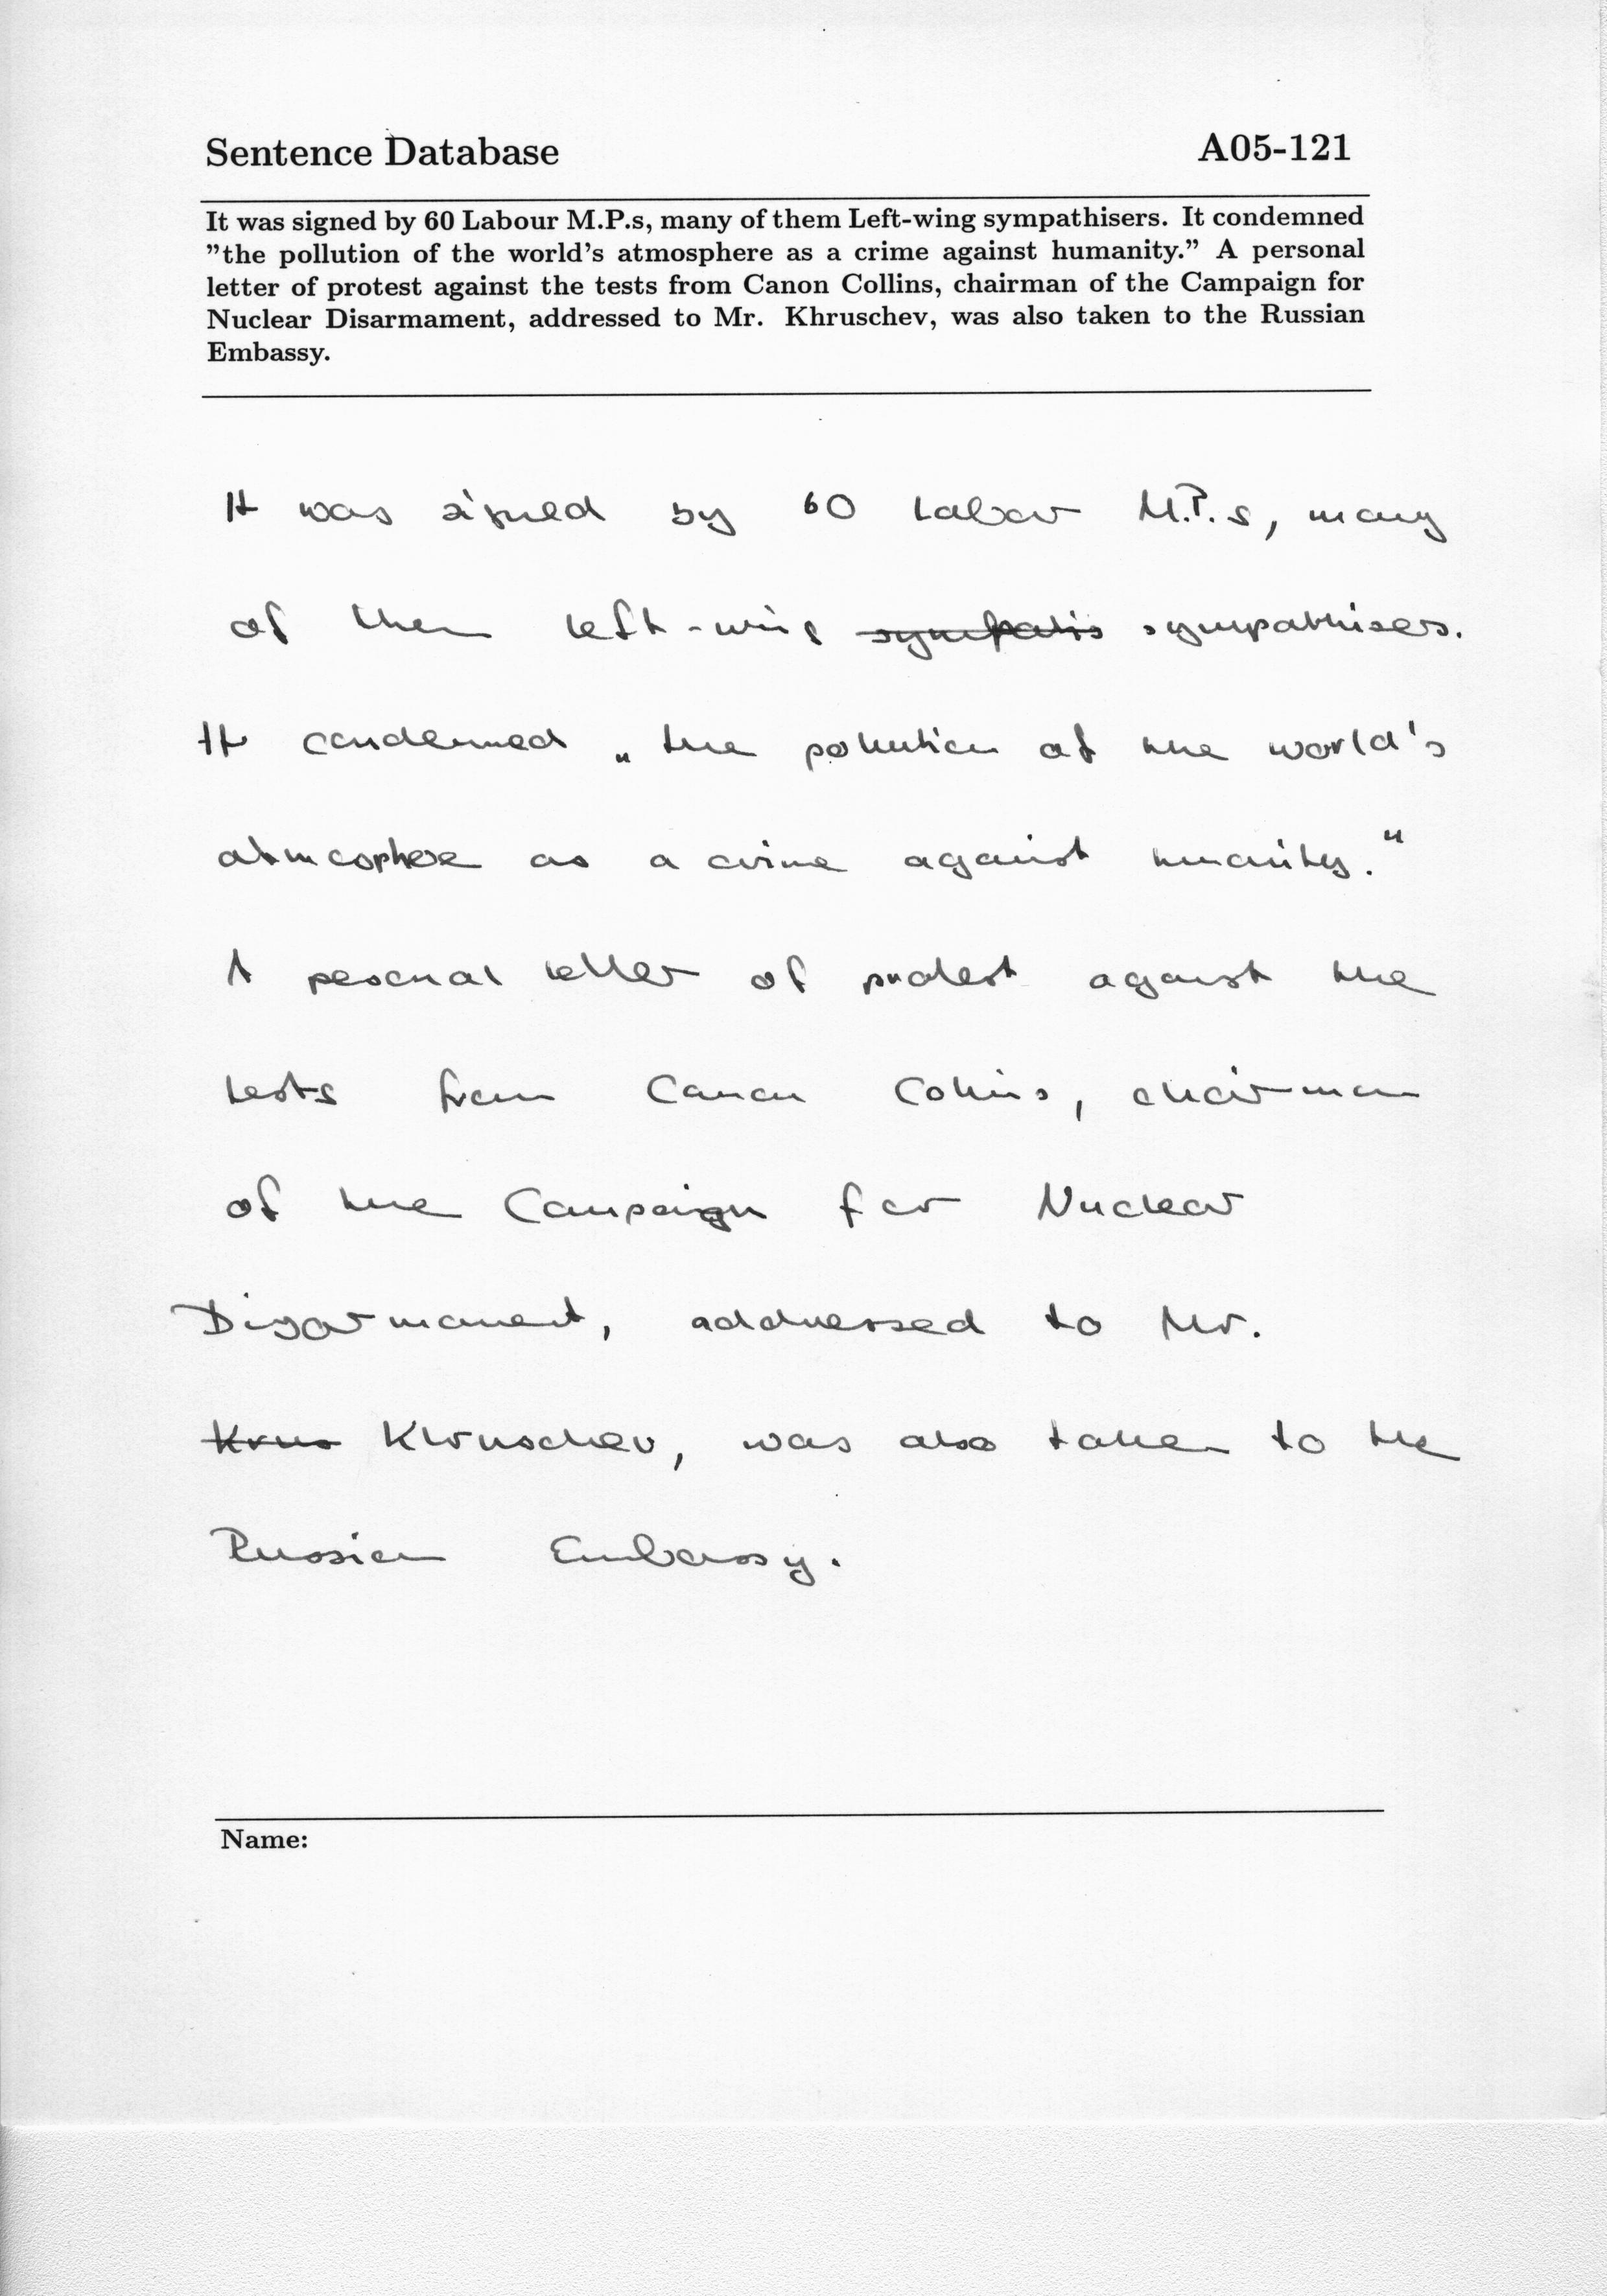 Sentence Database A05-121
It was signed by 60 Labour M.P.s, many of them Left-wing sympathisers. It condemned
"the pollution of the world's atmosphere as a crime against humanity." A personal
letter of protest against the tests from Canon Collins, chairman of the Campaign for
Nuclear Disarmament, addressed to Mr. Khruschev, was also taken to the Russian
Embassy.
It was signed by 60 Labour M.P.s, many
of them left-wing sympathisers.
It condemned „the pollution of the world's
atmosphere as a crime against humanity."
A personal letter of protest against the
tests from Canon Collins, chairman
of the Campaign for Nuclear
Disarmament, addressed to Mr.
Khruschev, was also taken to the
Russian Embassy.
Name: